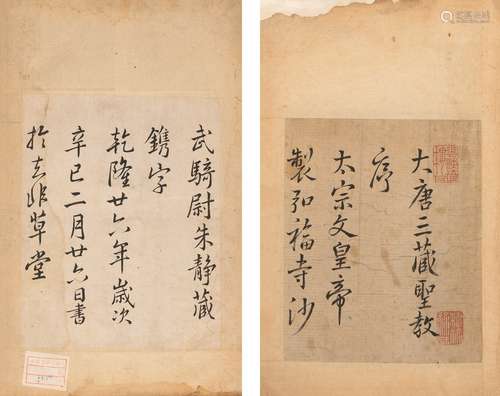 大唐三藏聖教
序
太宗文皇帝
製弘福寺沙
武騎尉朱静藏
鐫字
乾隆廿六年歲次
辛巳二月廿六日書
於知非草堂